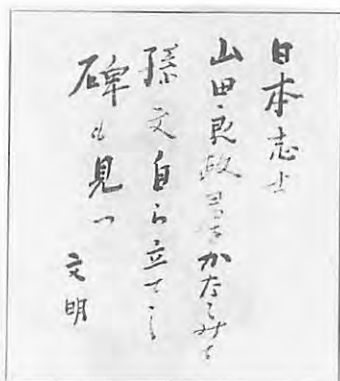 日本志士
山田良政君をかなしみて
孫文自ら立てし
碑も見つ
文明